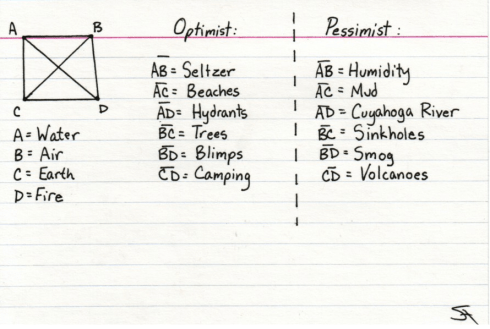 A B
C D
A = Water
B = Air
C = Earth
D = Fire
Optimist:
AB = Seltzer
AC = Beaches
AD = Hydrants
BC = Trees
BD = Blimps
CD = Camping
Pessimist:
AB = Humidity
AC = Mud
AD = Cuyahoga River
BC = Sinkholes
BD = Smog
CD = Volcanoes